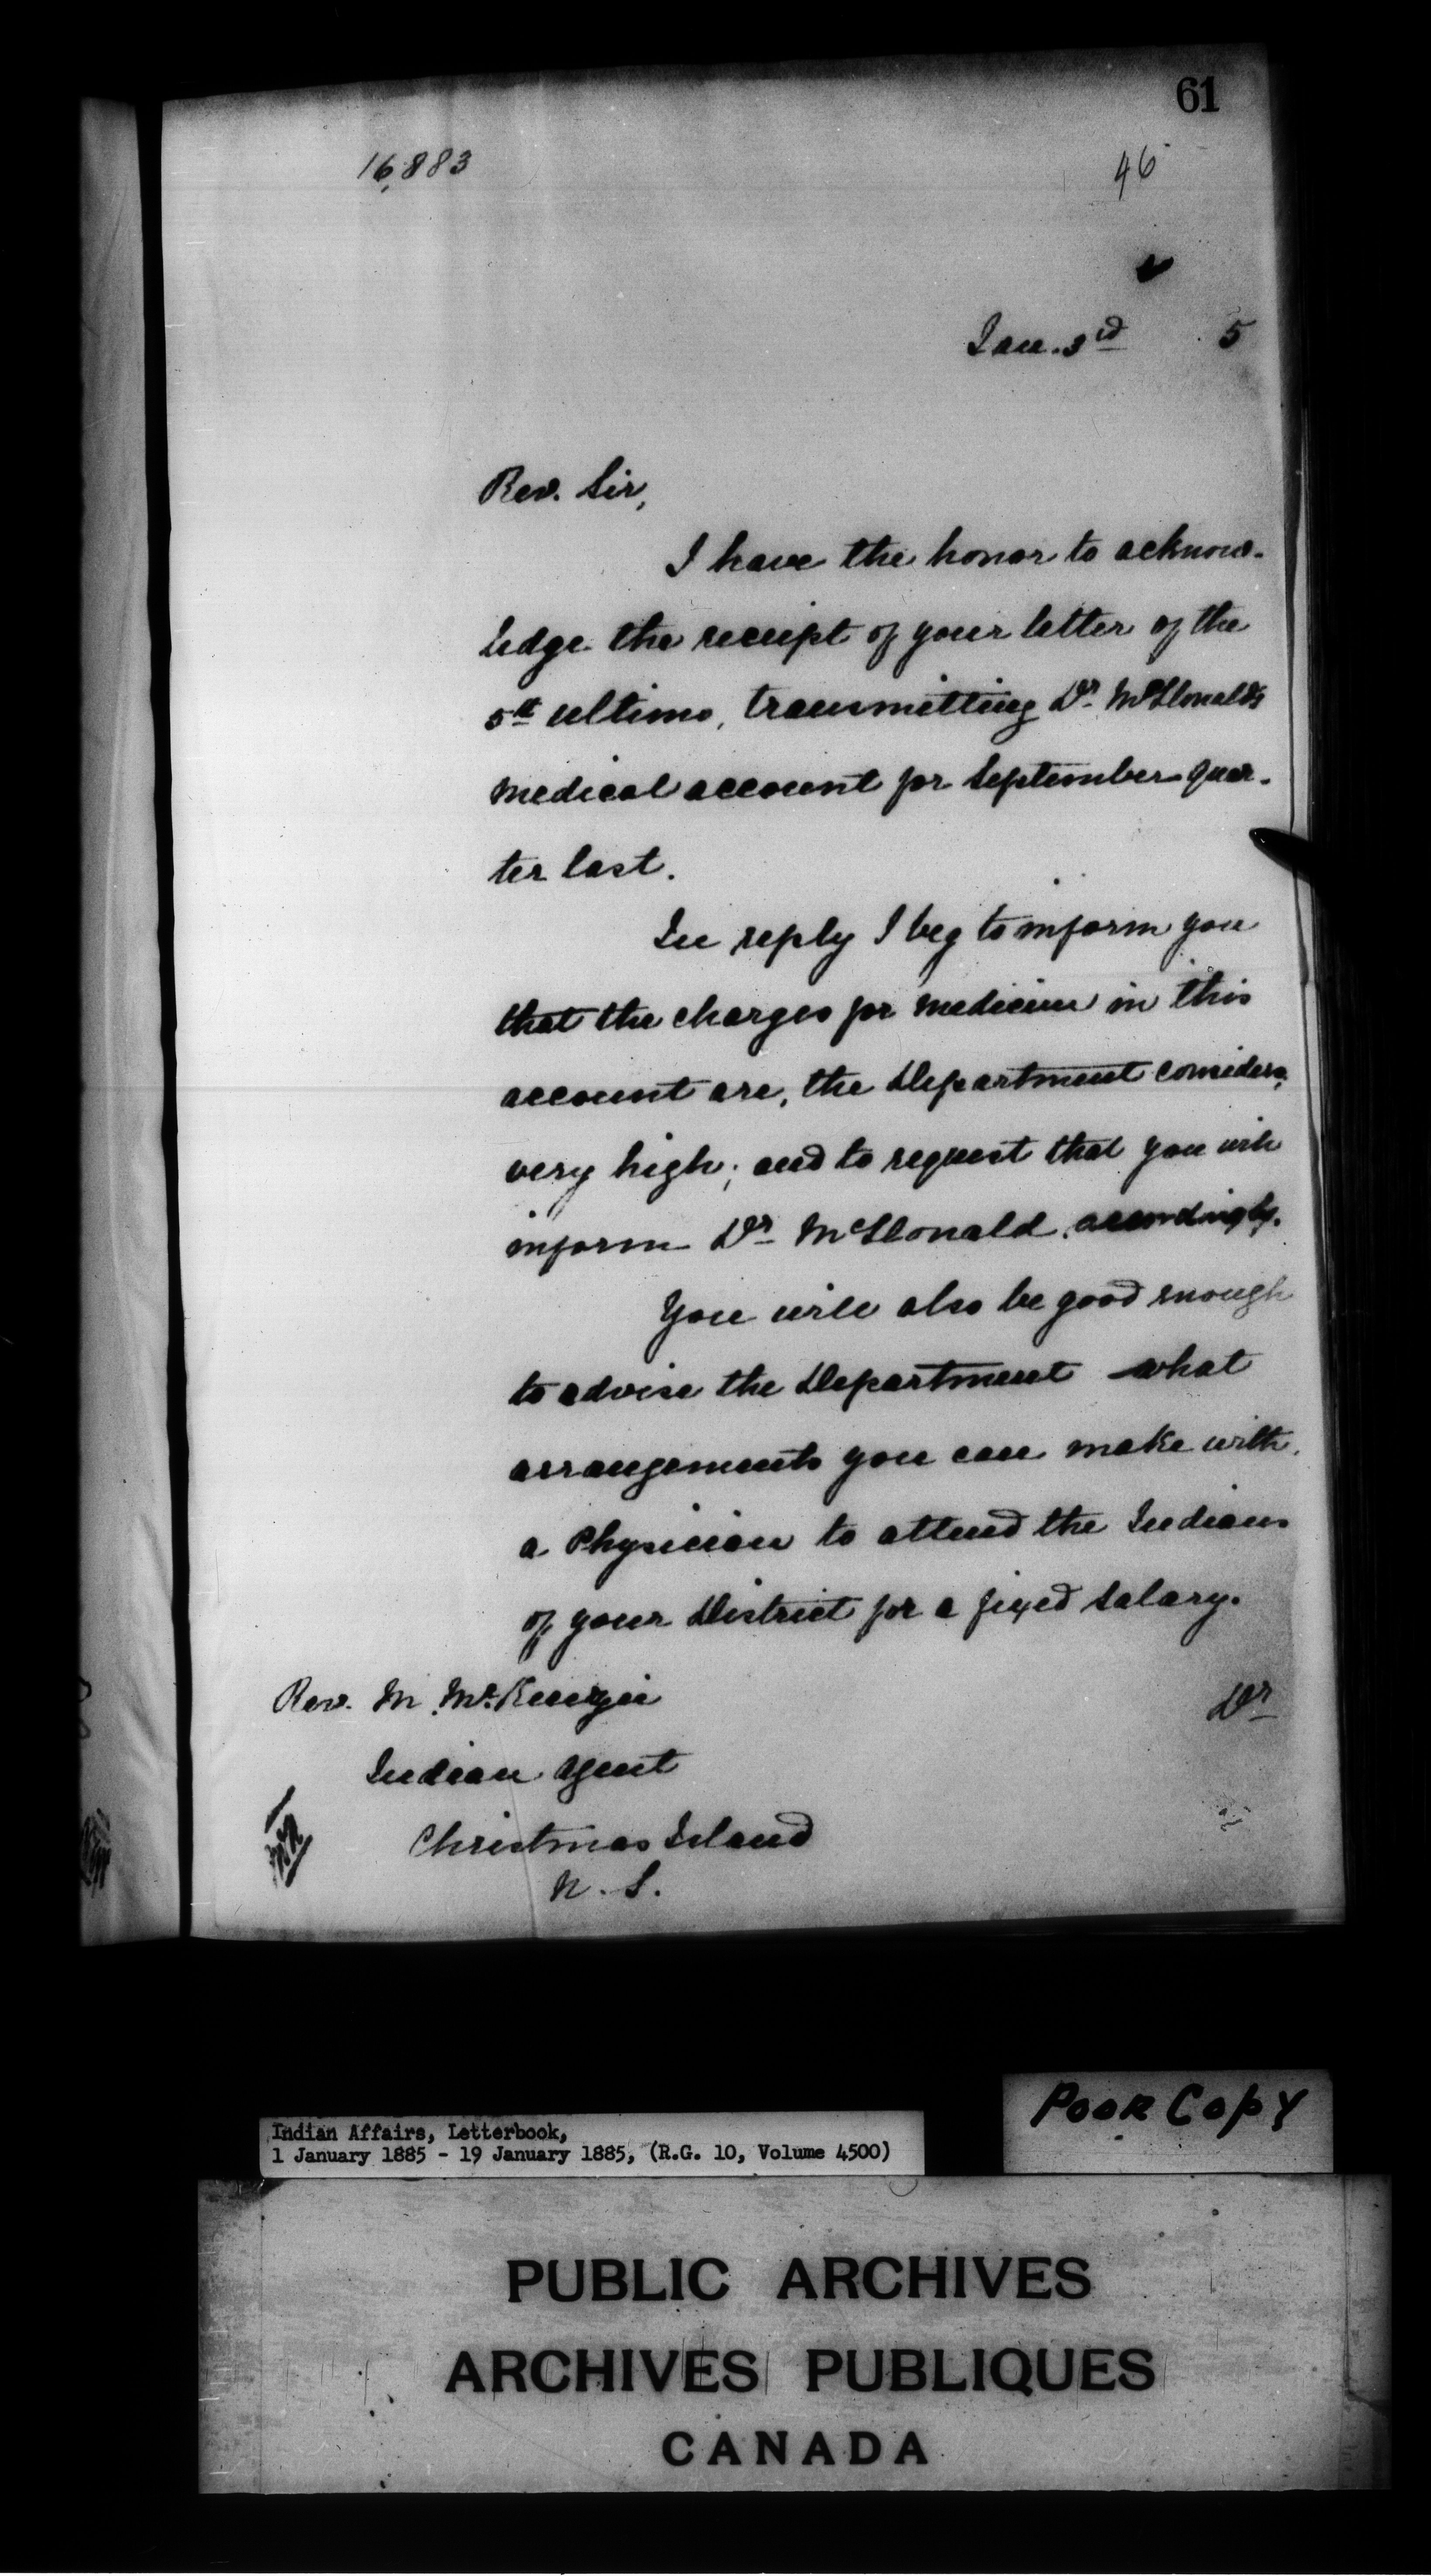 61
16,883
46
Jan. 3rd 5
Rev. Sir,
I have the honor to acknow-
ledge the receipt of your letter of the
5th ultimo, transmitting Dr. McDonald's
medical account for September quar-
ter last.
In reply I beg to inform you
that the charges for medicine in this
account are, the Department considers,
very high; and to request that you will
inform Dr. McDonald accordingly.
You will also be good enough
to advise the Department what
arrangements you can make with
a Physician to attend the Indians
of your District for a fixed salary.
Rev. M. McKenzie
Dr
Indian Agent
Christmas Island
N. S.
Poor Copy
Indian Affairs, Letterbook,
1 January 1885 - 19 January 1885, (R.G. 10, Volume 4500)
PUBLIC ARCHIVES
ARCHIVES PUBLIQUES
CANADA